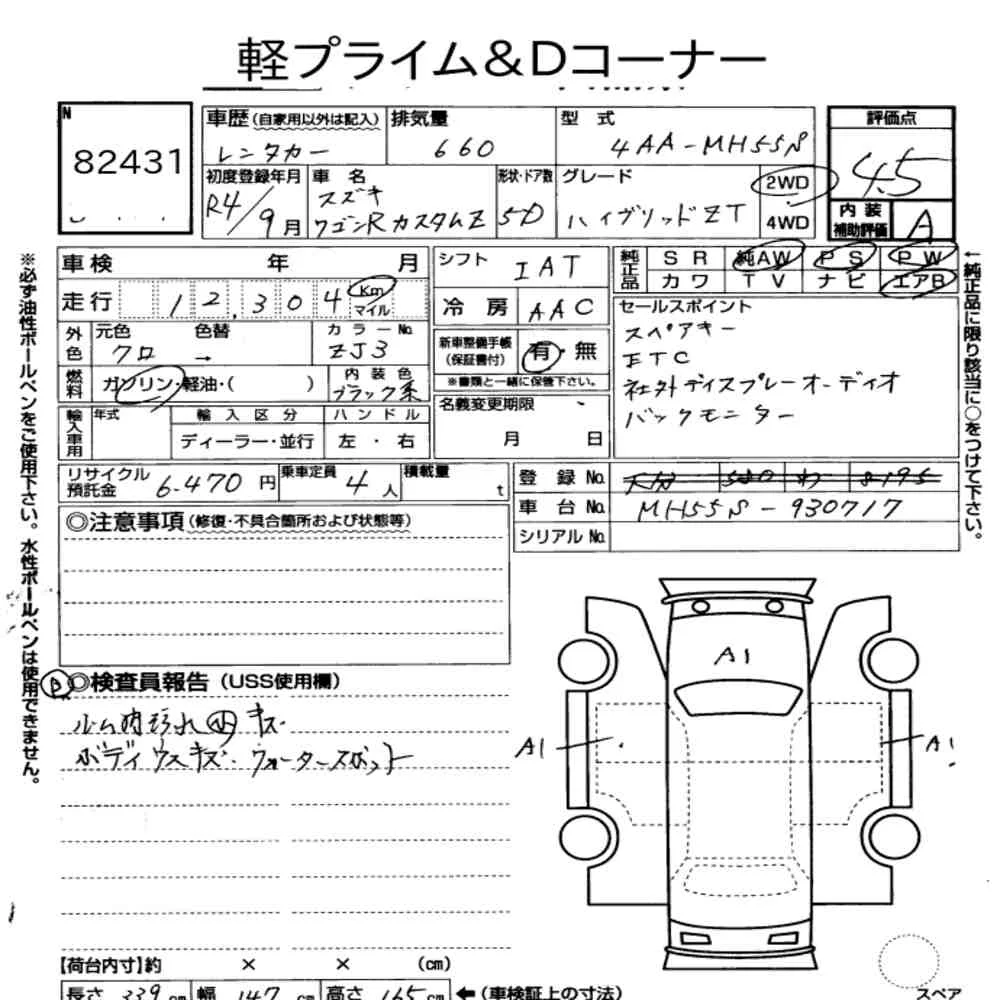 軽プライム&Dコーナー
N
82431
車歴(自家用以外は記入)
レンタカー
排気量
660
型式
4AA-MH55S
評価点
4.5
初度登録年月
R4/9月
車名
スズキ
ワゴンRカスタムZ
形状・ドア数
5D
グレード
ハイブリッドZT
2WD
4WD
内装
補助評価
A
車検 年 月
走行 12,304 Km
マイル
シフト
IAT
冷房 AAC
純正品
SR 純AW PS PW
カワ TV ナビ エアB
外色
元色 色替
クロ →
カラーNo.
ZJ3
新車整備手帳
(保証書付)
有・無
※書類と一緒に保管下さい。
セールスポイント
スペアキー
ETC
社外ディスプレーオーディオ
バックモニター
燃料
ガソリン・軽油・( )
内装色
ブラック系
名義変更期限
月 日
輸入車用
年式
輸入区分
ディーラー・並行
ハンドル
左・右
リサイクル
預託金
6.470円
乗車定員
4人
積載量
t
登録No.
車台No. MH55S-930717
シリアルNo.
◎注意事項(修復・不具合箇所および状態等)
B
◎検査員報告(USS使用欄)
ルーム内汚れ 小キズ
ボディウスキズ・ウォータースポット
A1
A1
A1
【荷台内寸】約 × × (cm)
長さ 339cm 幅 147cm 高さ 165cm ←(車検証上の寸法)
スペア
※必ず油性ボールペンをご使用下さい。水性ボールペンは使用できません。
←純正品に限り該当に○をつけて下さい。